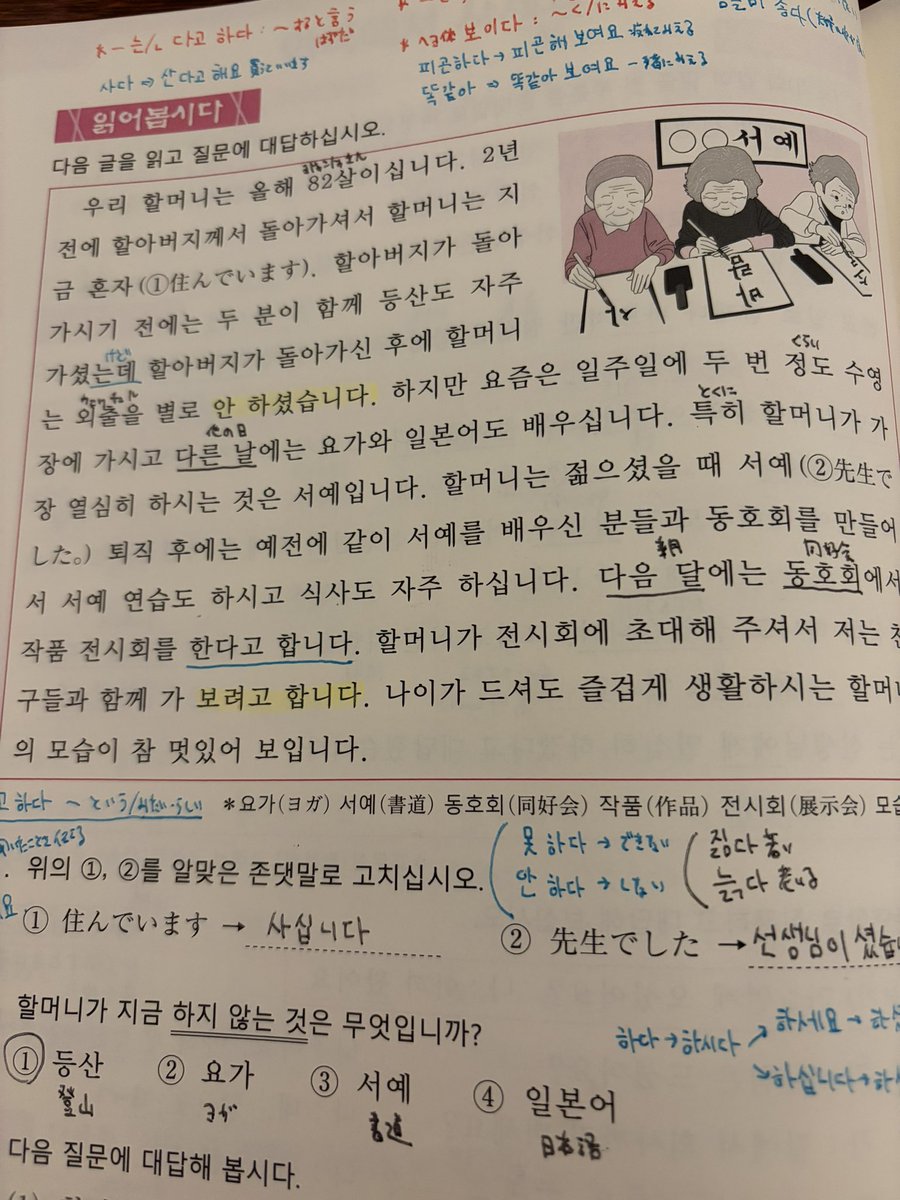 *-는/ㄴ 다고 하다 : ~すると言う
사다 ⇒ 산다고 해요
보이다 : ~く/に見える
피곤하다 → 피곤해 보여요 疲れて見える
똑같아 ⇒ 똑같아 보여요
읽어봅시다
다음 글을 읽고 질문에 대답하십시오.
○○서예
우리 할머니는 올해 82살이십니다. 2년
전에 할아버지께서 돌아가셔서 할머니는 지
금 혼자(①住んでいます). 할아버지가 돌아
가시기 전에는 두 분이 함께 등산도 자주
けど
가셨는데 할아버지가 돌아가신 후에 할머니
くらい
는 외출을 별로 안 하셨습니다. 하지만 요즘은 일주일에 두 번 정도 수영
他の日
とくに
장에 가시고 다른 날에는 요가와 일본어도 배우십니다. 특히 할머니가 가
장 열심히 하시는 것은 서예입니다. 할머니는 젊으셨을 때 서예(②先生で
した。) 퇴직 후에는 예전에 같이 서예를 배우신 분들과 동호회를 만들어
同好会
서 서예 연습도 하시고 식사도 자주 하십니다. 다음 달에는 동호회에서
작품 전시회를 한다고 합니다. 할머니가 전시회에 초대해 주셔서 저는 친
구들과 함께 가 보려고 합니다. 나이가 드셔도 즐겁게 생활하시는 할머니
의 모습이 참 멋있어 보입니다.
고 하다 ~という/みたい・らしい
*요가(ヨガ) 서예(書道) 동호회(同好会) 작품(作品) 전시회(展示会) 모습
못 하다 → できない
안 하다 → しない
젊다 若い
늙다 老いる
. 위의 ①, ②를 알맞은 존댓말로 고치십시오.
① 住んでいます → 사십니다
② 先生でした → 선생님이셨습
할머니가 지금 하지 않는 것은 무엇입니까?
하다 → 하시다
하세요
하십니다
① 등산 ② 요가 ③ 서예 ④ 일본어
登山 ヨガ 書道 日本語
다음 질문에 대답해 봅시다.